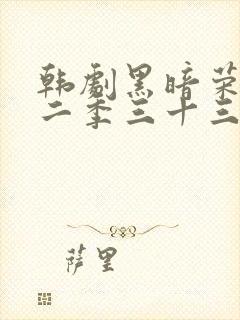 韩劇黑暗荣
二季三十三
萨里